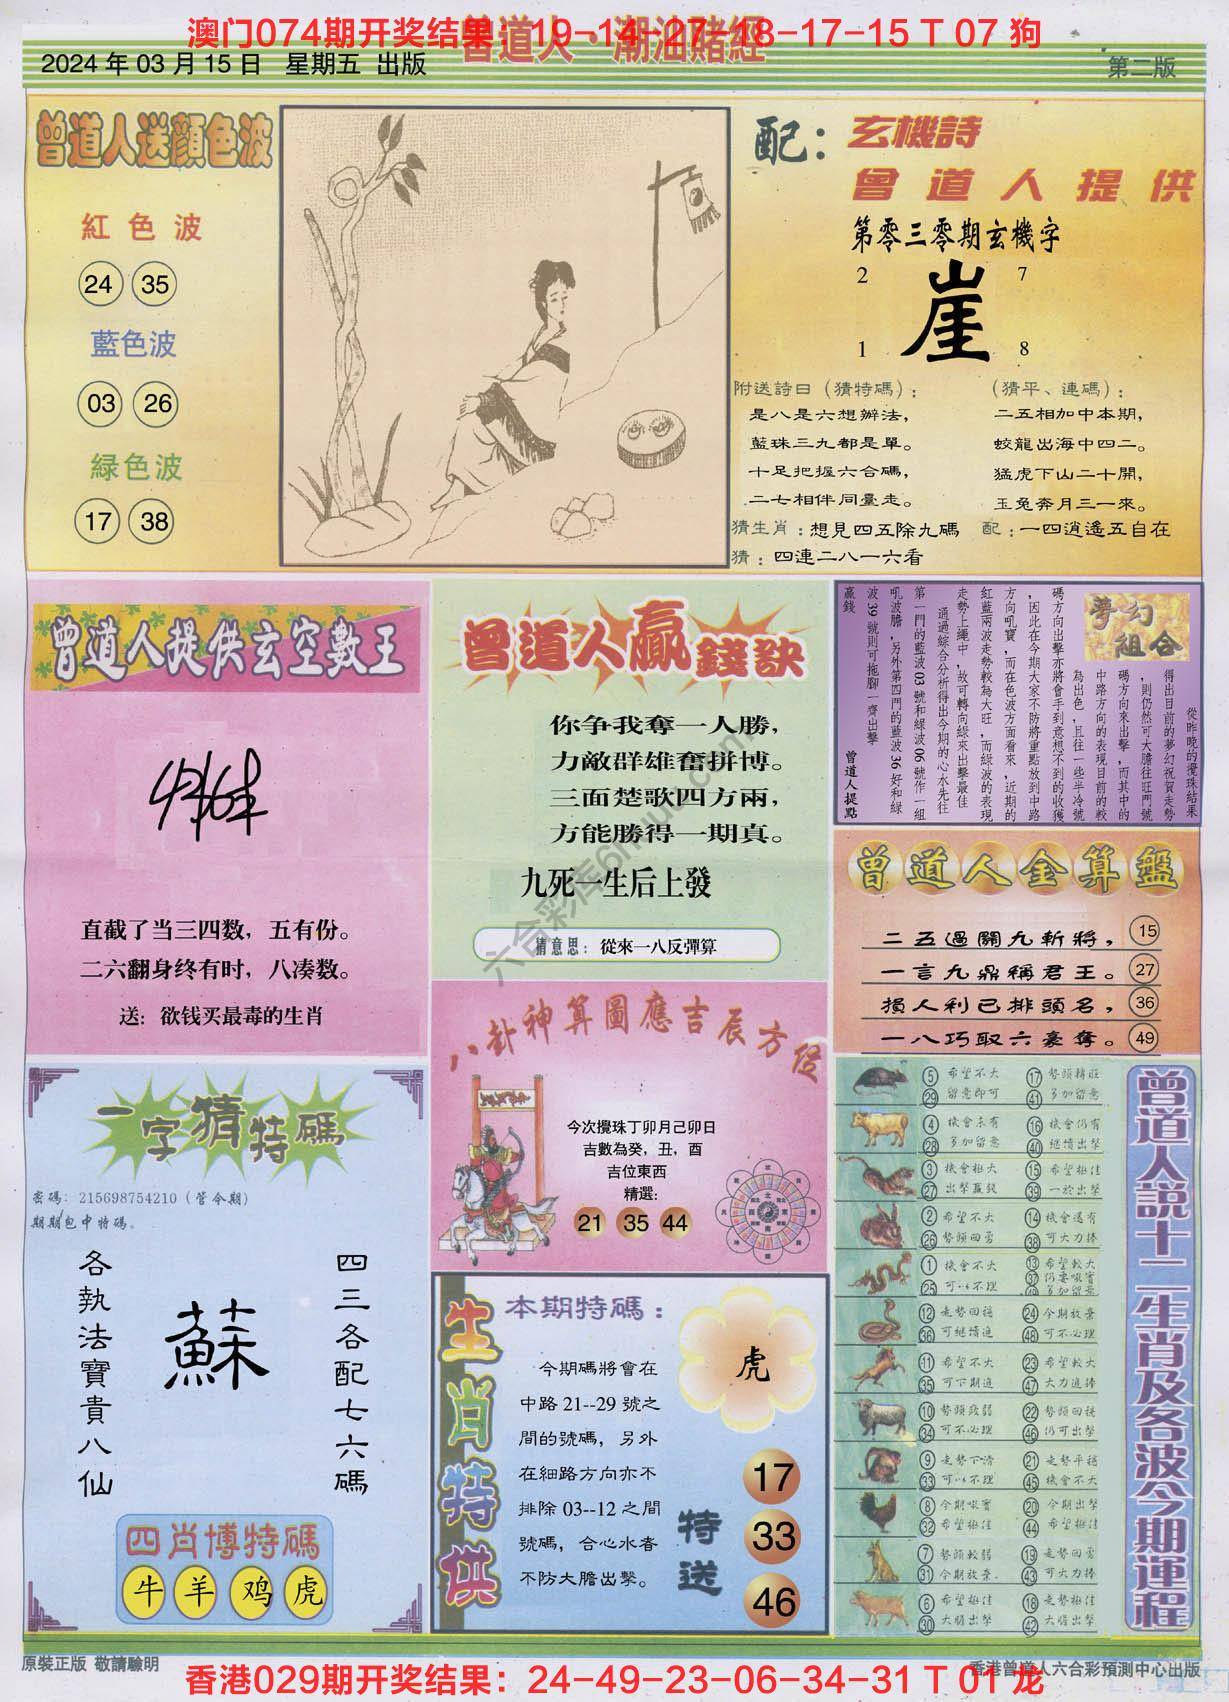 澳门074期开奖结果：19-14-27-48-17-15 T 07 狗
曾道人·潮汕賭經
2024 年 03 月 15 日 星期五 出版
第二版
曾道人送顏色波
紅色波
24 35
藍色波
03 26
緑色波
17 38
配：玄機詩
曾道人提供
第零三零期玄機字
2 7
崖
1 8
附送詩曰（猜特碼）：
是八是六想辦法，
藍珠三九都是單。
十足把握六合碼，
二七相伴同臺走。
（猜平、連碼）：
二五相加中本期，
蛟龍出海中四二。
猛虎下山二十開，
玉兔奔月三一來。
猜生肖：想見四五除九碼 配：一四逍遙五自在
猜：四連二八一六看
曾道人提供玄空數王
直截了当三四数，五有份。
二六翻身终有时，八凑数。
送：欲钱买最毒的生肖
曾道人贏錢訣
你争我奪一人勝，
力敵群雄奮拼博。
三面楚歌四方兩，
方能勝得一期真。
九死一生后上發
猜意思：從來一八反彈算
夢幻組合
從昨晚的攪珠結果
得出目前的夢幻祝賀走勢
，則仍然可大膽往旺門號
碼方向來出擊，而其中的
中路方向的表現目前的較
為出色，且往一些半冷號
碼方向出擊亦將會手到意想不到的收獲
，因此在今期大家不防將重點放到中路
方向吼寶，而在色波方面看來，近期的
紅藍兩波走勢較為大旺，而綠波的表現
走勢上繩中，故可轉向綠來出擊最佳
通過綜合分析得出今期的心水先往
第一門的藍波 03 號和綠波 06 號作一組
吼波膽，另外第四門的藍波 36 好和綠
波 39 號則可拖腳一齊出擊
贏錢 曾道人提點
曾道人金算盤
二五過關九斬將，15
一言九鼎稱君王。27
損人利己排頭名，36
一八巧取六豪奪。49
八卦神算圖應吉辰方位
今次攪珠丁卯月己卯日
吉數為癸，丑，酉
吉位東西
精選：
21 35 44
一字猜特碼
密碼：215698754210（管令期）
期期包中特碼。
各執法寶貴八仙
蘇
四三各配七六碼
四肖博特碼
牛 羊 鸡 虎
生肖特供
本期特碼：
虎
今期碼將會在
中路 21--29 號之
間的號碼，另外
在細路方向亦不
排除 03--12 之間
號碼，合心水者
不防大膽出擊。
特送
17
33
46
曾道人説十二生肖及各波今期運程
5 希望不大 17 勢頭精旺
29 留意即可 41 多加留意
4 機會未有 16 機會仍有
28 多加留意 40 繼續出擊
3 機會極大 15 希望極佳
27 出擊贏錢 39 一於出擊
2 希望不大 14 機會還有
26 勢頭回勇 38 可大力捧
1 機會不大 13 希望較大
25 可以不理 37 仍要吼寶
多加留意
12 走勢回穩 24 今期放棄
36 可繼續追 48 可不必理
11 希望不大 23 希望較大
35 可下期追 47 大力追捧
10 勢頭致弱 22 勢頭回穩
34 可不必理 46 仍可出擊
9 走勢下滑 21 走勢平穩
33 可以不理 45 機會不大
8 今期吼寶 20 今期出擊
32 希望極佳 44 希望極佳
7 勢頭較弱 19 走勢回勇
31 今期放棄. 43 可大力捧
6 希望極佳 18 走勢極佳
30 大膽出擊 42 大膽出擊
原裝正版 敬請驗明
香港曾道人六合彩預測中心出版
香港029期开奖结果：24-49-23-06-34-31 T 01 龙